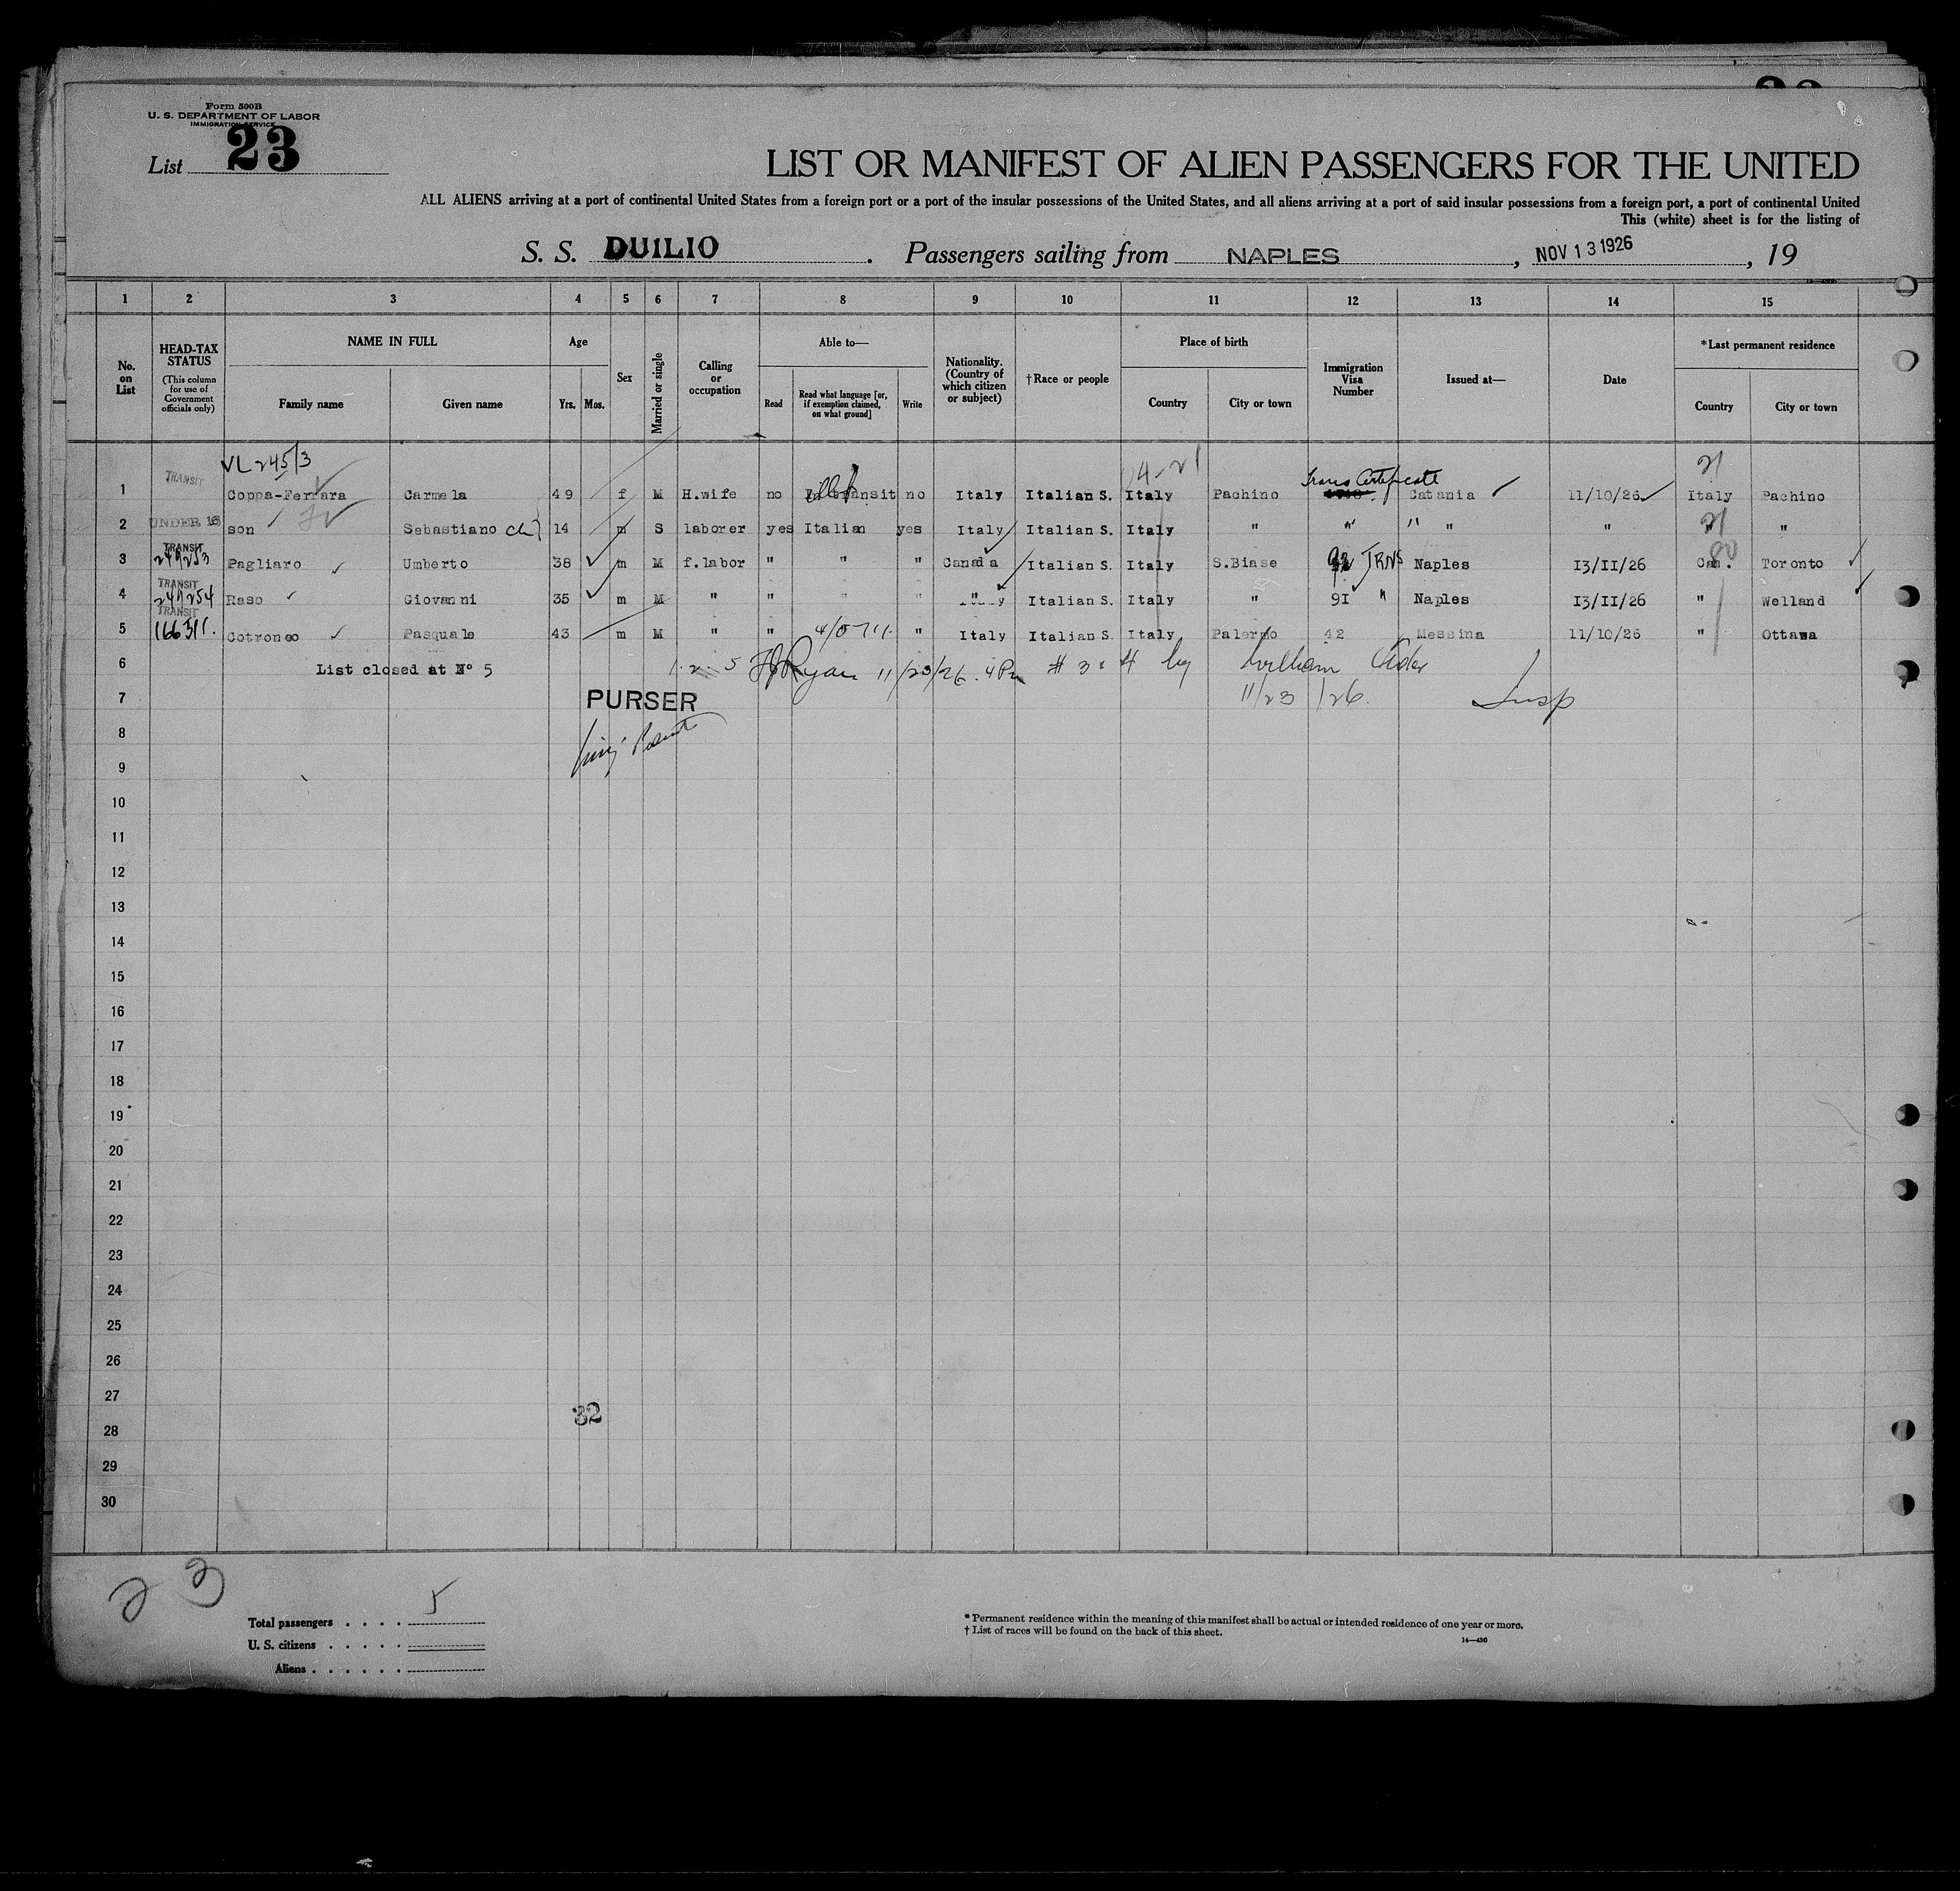 Form 500B
U. S. DEPARTMENT OF LABOR
IMMIGRATION SERVICE
List 23
LIST OR MANIFEST OF ALIEN PASSENGERS FOR THE UNITED
ALL ALIENS arriving at a port of continental United States from a foreign port or a port of the insular possessions of the United States, and all aliens arriving at a port of said insular possessions from a foreign port, a port of continental United
This (white) sheet is for the listing of
S. S. DUILIO . Passengers sailing from NAPLES , NOV 13 1926 , 19
1 2 3 4 5 6 7 8 9 10 11 12 13 14 15
No. on List
HEAD-TAX STATUS (This column for use of Government officials only)
NAME IN FULL
Family name Given name
Age
Yrs. Mos.
Sex
Married or single
Calling or occupation
Able to—
Read
Read what language [or, if exemption claimed, on what ground]
Write
Nationality. (Country of which citizen or subject)
†Race or people
Place of birth
Country City or town
Immigration Visa Number
Issued at—
Date
*Last permanent residence
Country City or town
VL 245/3 4-21 Trans Certificate 21
1 TRANSIT Coppa-Ferrara Carmela 49 f M H.wife no In transit no Italy Italian S. Italy Pachino Catania 11/10/26 Italy Pachino
2 UNDER 16 son Sebastiano ch 14 m S laborer yes Italian yes Italy Italian S. Italy " " " " " 21 " "
3 TRANSIT 249253 Pagliaro Umberto 38 m M f.labor " " " Canada Italian S. Italy S.Biase 92 TRNS Naples 13/11/26 Can. 80 Toronto
4 TRANSIT 249254 Raso Giovanni 35 m M " " " " " Italian S. Italy " 91 " Naples 13/11/26 " Welland
5 TRANSIT 166311. Cotroneo Pasquale 43 m M " " " Italy Italian S. Italy Palermo 42 Messina 11/10/26 " Ottawa
6 List closed at N° 5 1. 2. 5 Ryan 11/23/26. 4 Pm # 3 & 4 by William
7 PURSER 11/23/26. Insp
8
9
10
11
12
13
14
15
16
17
18
19
20
21
22
23
24
25
26
27
32
28
29
30
23
Total passengers . . . . 5
U. S. citizens . . . . .
Aliens . . . . . .
* Permanent residence within the meaning of this manifest shall be actual or intended residence of one year or more.
† List of races will be found on the back of this sheet.
14—430